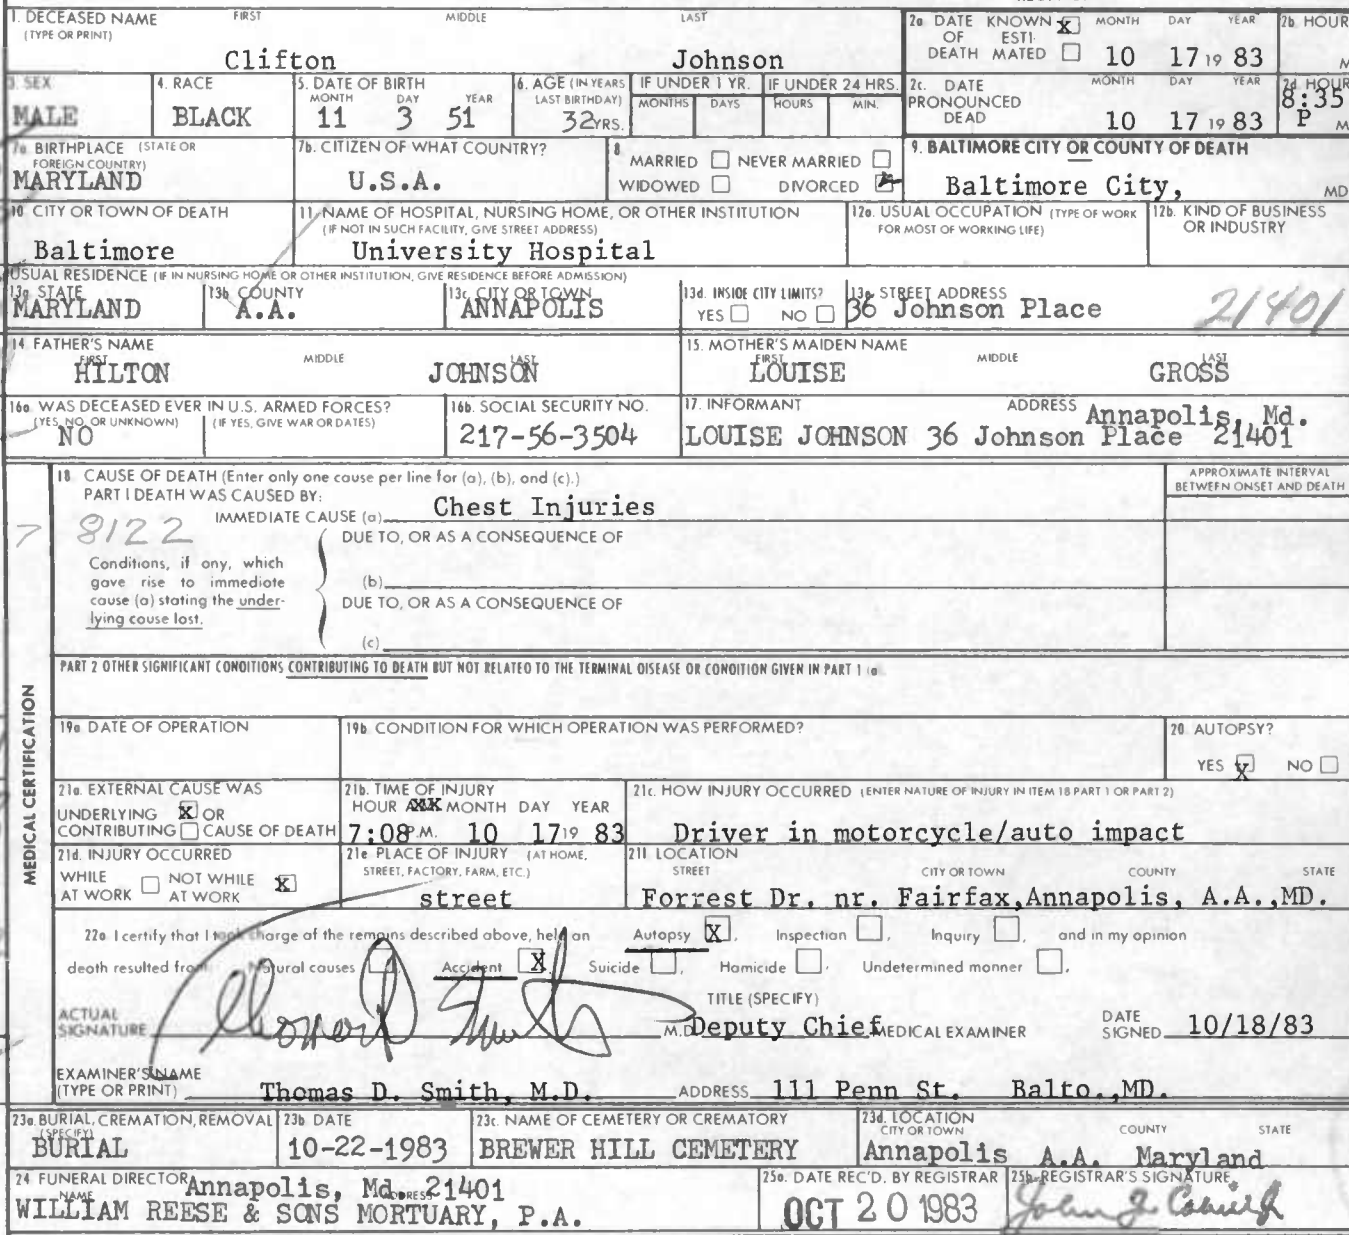 1. DECEASED NAME (TYPE OR PRINT) FIRST MIDDLE LAST
Clifton Johnson
2a DATE OF DEATH KNOWN X ESTIMATED MONTH DAY YEAR 10 17 19 83
2b. HOUR M
3. SEX MALE
4. RACE BLACK
5. DATE OF BIRTH MONTH DAY YEAR 11 3 51
6. AGE (IN YEARS LAST BIRTHDAY) 32 YRS.
IF UNDER 1 YR. MONTHS DAYS
IF UNDER 24 HRS. HOURS MIN.
2c. DATE PRONOUNCED DEAD MONTH DAY YEAR 10 17 19 83
2d HOUR 8:35 P M
7a BIRTHPLACE (STATE OR FOREIGN COUNTRY) MARYLAND
7b. CITIZEN OF WHAT COUNTRY? U.S.A.
8 MARRIED NEVER MARRIED
WIDOWED DIVORCED X
9. BALTIMORE CITY OR COUNTY OF DEATH
Baltimore City, MD
10 CITY OR TOWN OF DEATH Baltimore
11. NAME OF HOSPITAL, NURSING HOME, OR OTHER INSTITUTION
(IF NOT IN SUCH FACILITY, GIVE STREET ADDRESS)
University Hospital
12a. USUAL OCCUPATION (TYPE OF WORK FOR MOST OF WORKING LIFE)
12b. KIND OF BUSINESS OR INDUSTRY
USUAL RESIDENCE (IF IN NURSING HOME OR OTHER INSTITUTION, GIVE RESIDENCE BEFORE ADMISSION)
13a STATE MARYLAND
13b COUNTY A.A.
13c. CITY OR TOWN ANNAPOLIS
13d. INSIDE CITY LIMITS? YES NO
13e STREET ADDRESS 36 Johnson Place 21401
14 FATHER'S NAME FIRST MIDDLE LAST
HILTON JOHNSON
15. MOTHER'S MAIDEN NAME FIRST MIDDLE LAST
LOUISE GROSS
16a WAS DECEASED EVER IN U.S. ARMED FORCES?
(YES, NO, OR UNKNOWN) (IF YES, GIVE WAR OR DATES)
NO
16b. SOCIAL SECURITY NO. 217-56-3504
17. INFORMANT ADDRESS Annapolis, Md.
LOUISE JOHNSON 36 Johnson Place 21401
MEDICAL CERTIFICATION
18 CAUSE OF DEATH (Enter only one cause per line for (a), (b), and (c).)
PART I DEATH WAS CAUSED BY:
IMMEDIATE CAUSE (a) Chest Injuries
APPROXIMATE INTERVAL BETWEEN ONSET AND DEATH
7 8122
DUE TO, OR AS A CONSEQUENCE OF
Conditions, if any, which
gave rise to immediate
cause (a) stating the under-
lying cause last.
(b)
DUE TO, OR AS A CONSEQUENCE OF
(c)
PART 2 OTHER SIGNIFICANT CONDITIONS CONTRIBUTING TO DEATH BUT NOT RELATED TO THE TERMINAL DISEASE OR CONDITION GIVEN IN PART 1 (a
19a DATE OF OPERATION
19b CONDITION FOR WHICH OPERATION WAS PERFORMED?
20 AUTOPSY?
YES X NO
21a. EXTERNAL CAUSE WAS
UNDERLYING X OR
CONTRIBUTING CAUSE OF DEATH
21b. TIME OF INJURY
HOUR MONTH DAY YEAR
7:08 P.M. 10 17 19 83
21c. HOW INJURY OCCURRED (ENTER NATURE OF INJURY IN ITEM 18 PART 1 OR PART 2)
Driver in motorcycle/auto impact
21d. INJURY OCCURRED
WHILE AT WORK NOT WHILE AT WORK X
21e PLACE OF INJURY (AT HOME, STREET, FACTORY, FARM, ETC.)
street
21f LOCATION
STREET CITY OR TOWN COUNTY STATE
Forrest Dr. nr. Fairfax, Annapolis, A.A., MD.
22a I certify that I took charge of the remains described above, held an Autopsy X, Inspection, Inquiry, and in my opinion
death resulted from Natural causes, Accident X, Suicide, Homicide, Undetermined manner.
ACTUAL SIGNATURE M.D.
TITLE (SPECIFY)
Deputy Chief MEDICAL EXAMINER
DATE SIGNED 10/18/83
EXAMINER'S NAME (TYPE OR PRINT) Thomas D. Smith, M.D. ADDRESS 111 Penn St. Balto., MD.
23a. BURIAL, CREMATION, REMOVAL (SPECIFY) BURIAL
23b DATE 10-22-1983
23c. NAME OF CEMETERY OR CREMATORY
BREWER HILL CEMETERY
23d. LOCATION CITY OR TOWN COUNTY STATE
Annapolis A.A. Maryland
24 FUNERAL DIRECTOR NAME ADDRESS Annapolis, Md. 21401
WILLIAM REESE & SONS MORTUARY, P.A.
25a. DATE REC'D. BY REGISTRAR OCT 20 1983
25b. REGISTRAR'S SIGNATURE